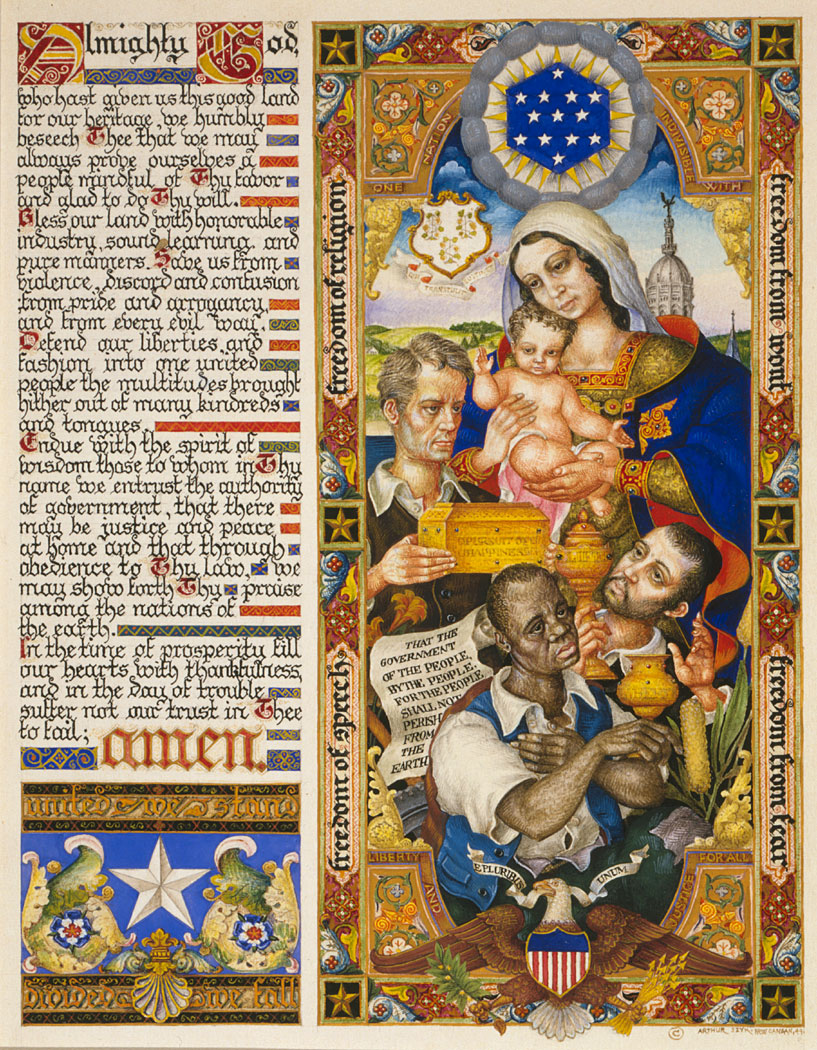 Almighty God,
who hast given us this good land
for our heritage, we humbly
beseech Thee that we may
always prove ourselves a
people mindful of Thy favor
and glad to do Thy will.
Bless our land with honorable
industry, sound learning, and
pure manners. Save us from
violence, discord and confusion
from pride and arrogancy,
and from every evil way.
Defend our liberties, and
fashion into one united
people the multitudes brought
hither out of many kindreds
and tongues.
Endue with the spirit of
wisdom those to whom in Thy
name we entrust the authority
of government, that there
may be justice and peace
at home and that through
obedience to Thy law, we
may show forth Thy praise
among the nations of
the earth.
In the time of prosperity fill
our hearts with thankfulness
and in the day of trouble
suffer not our trust in Thee
to fail;
amen.
united we stand
divided we fall
ONE NATION INDIVISIBLE WITH
LIBERTY AND JUSTICE FOR ALL
freedom of religion
freedom of speech
freedom from want
freedom from fear
TRANSTULIT
PURSUIT OF
HAPPINESS
THAT THE
GOVERNMENT
OF THE PEOPLE,
BY THE PEOPLE,
FOR THE PEOPLE
SHALL NOT
PERISH
FROM
THE
EARTH
E PLURIBUS UNUM
© ARTHUR SZYK NEW CANAAN,